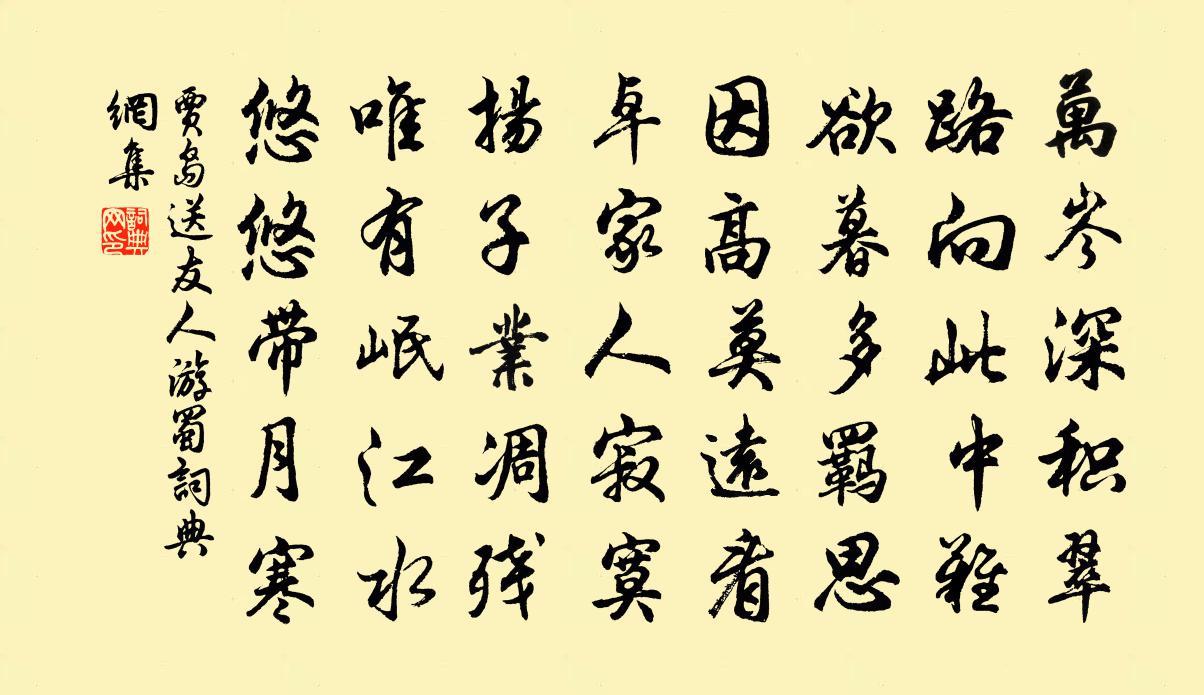 萬岑深积翠
路向此中難
欲暮多羁思
因高莫遠看
卓家人寂寞
揚子業凋残
唯有岷江水
悠悠带月寒
賈島送友人游蜀詞典
網集
詞典网印